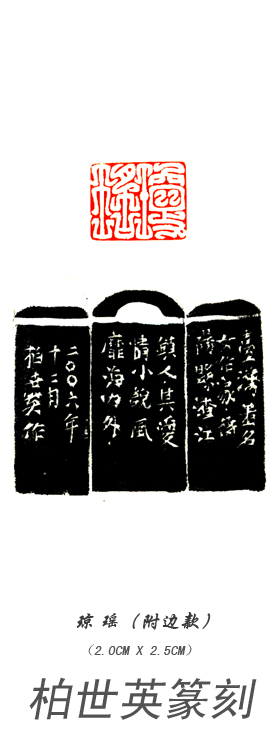 臺灣著名
女作家衡
陽縣渣江
鎮人其愛
情小說風
靡海内外
二〇〇六年
十二月
柏世英作
琼瑶(附边款)
(2.0CM X 2.5CM)
柏世英篆刻